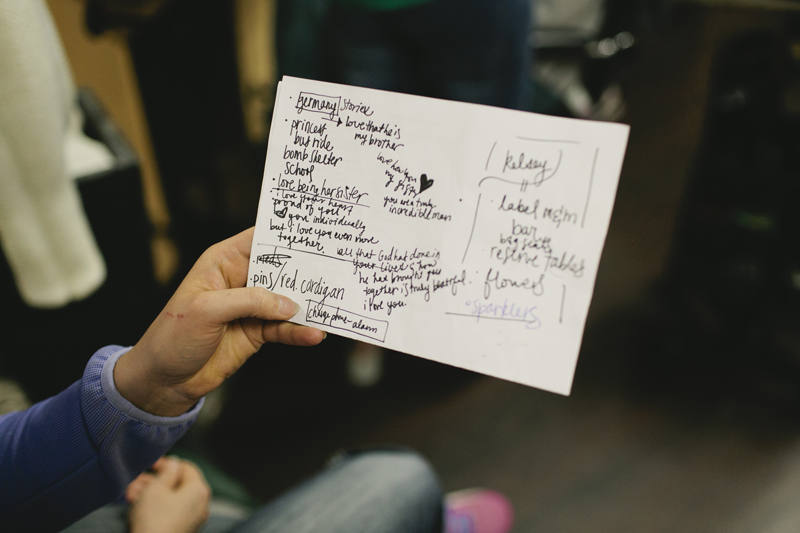 germany stories
→ love that he is
my brother
• princess
bus ride
bomb shelter
school
love how you
you are a truly
incredible man
• love being her sister
i love your heart
proud of you
you individually
but i love you even more
together.
all that God has done in
your lives & how
he has brought you
together is truly beautiful.
i love you.
• pins/red cardigan
charge phone - alarm
kelsey
• label m&m
bar
reserve tables
• flowers
• sparklers